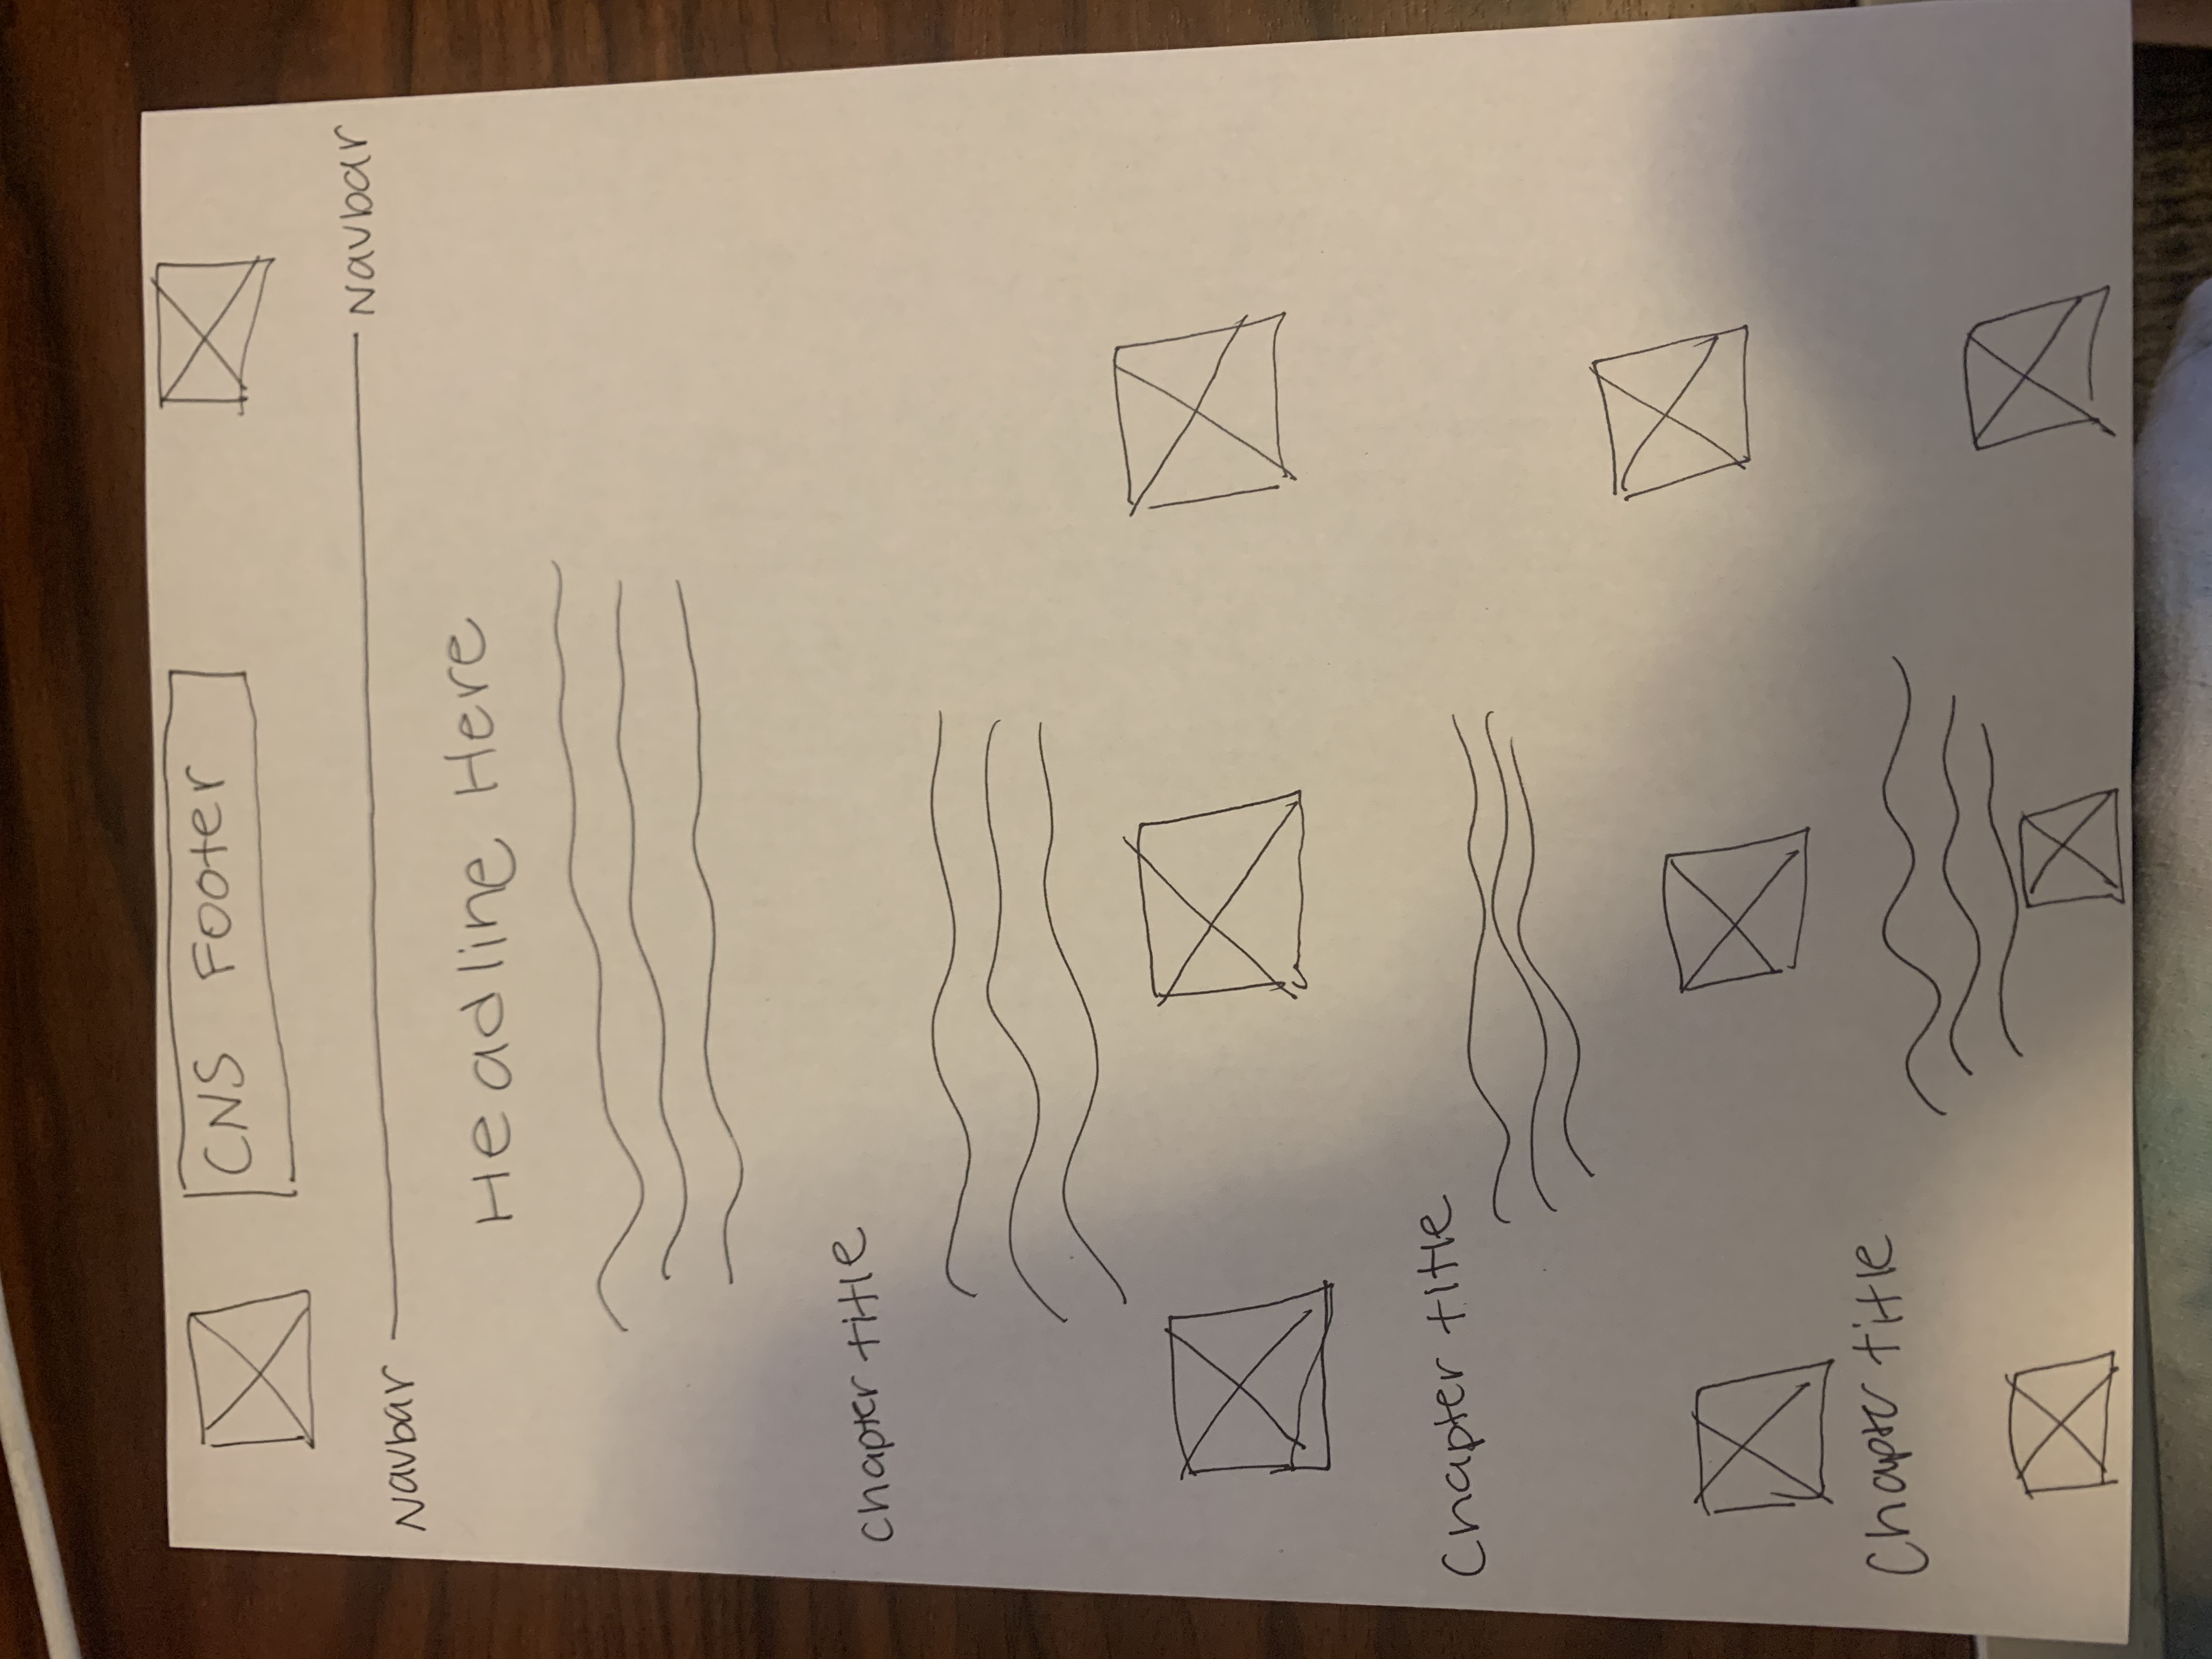 CNS Footer
Navbar Navbar
Headline Here
Chapter title
Chapter title
Chapter title